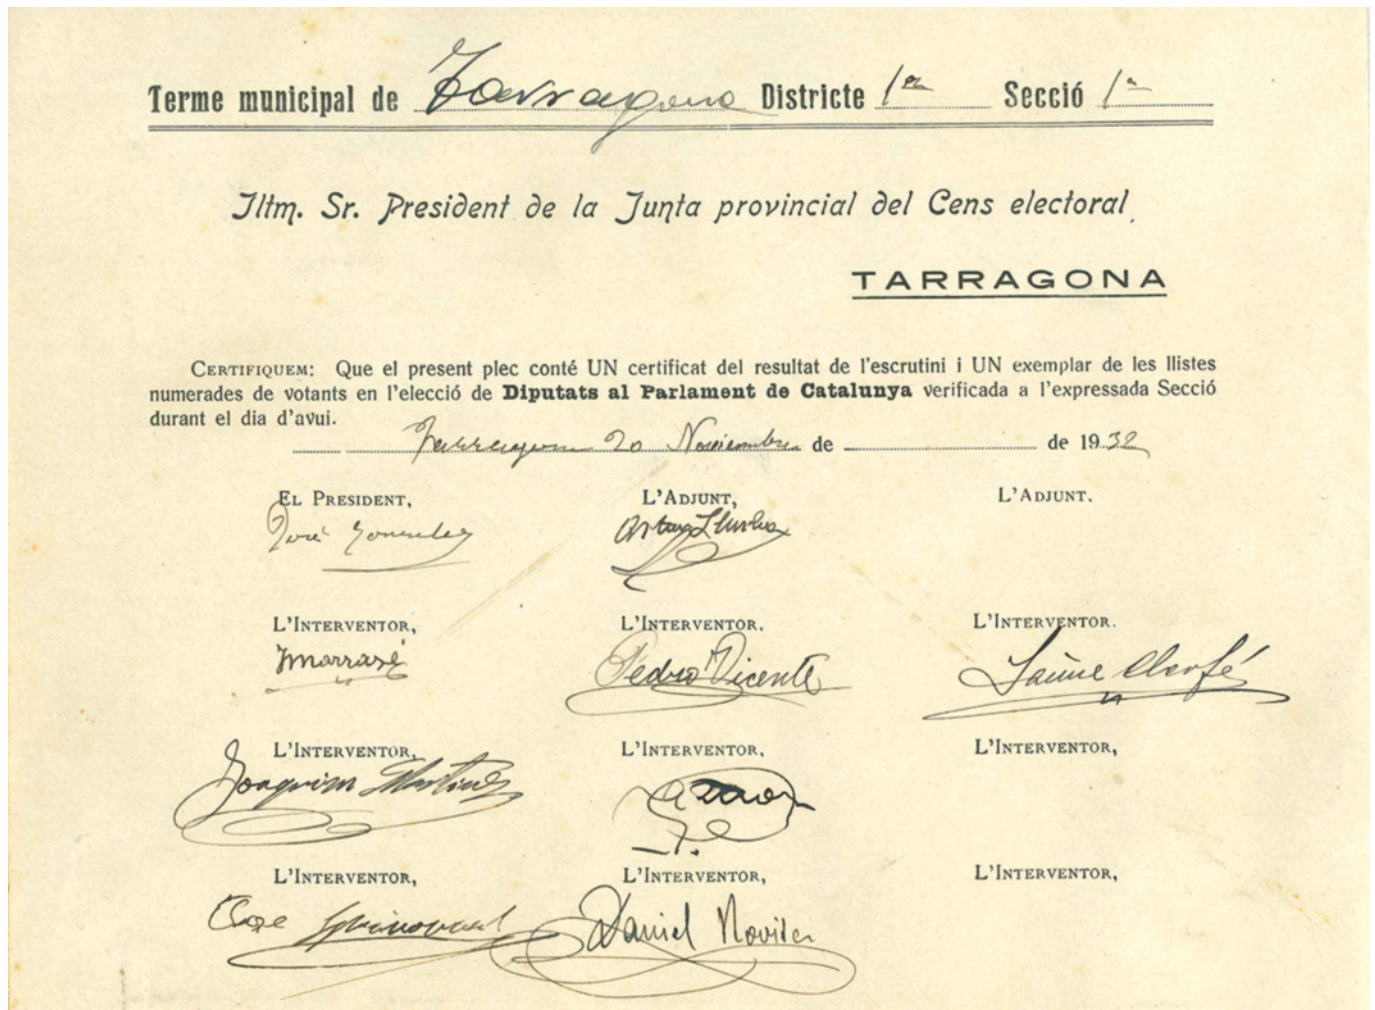 Terme municipal de Tarragona Districte 1er Secció 1a
Iltm. Sr. President de la Junta provincial del Cens electoral
TARRAGONA
CERTIFIQUEM: Que el present plec conté UN certificat del resultat de l'escrutini i UN exemplar de les llistes
numerades de votants en l'elecció de Diputats al Parlament de Catalunya verificada a l'expressada Secció
durant el dia d'avui.
Tarragona 20 Noviembre de de 1932
EL PRESIDENT, L'ADJUNT, L'ADJUNT.
José Gonzalez Artur
L'INTERVENTOR, L'INTERVENTOR. L'INTERVENTOR.
Pedro Vicente Jaime
L'INTERVENTOR, L'INTERVENTOR, L'INTERVENTOR,
Joaquim Martinez
L'INTERVENTOR, L'INTERVENTOR, L'INTERVENTOR,
Daniel